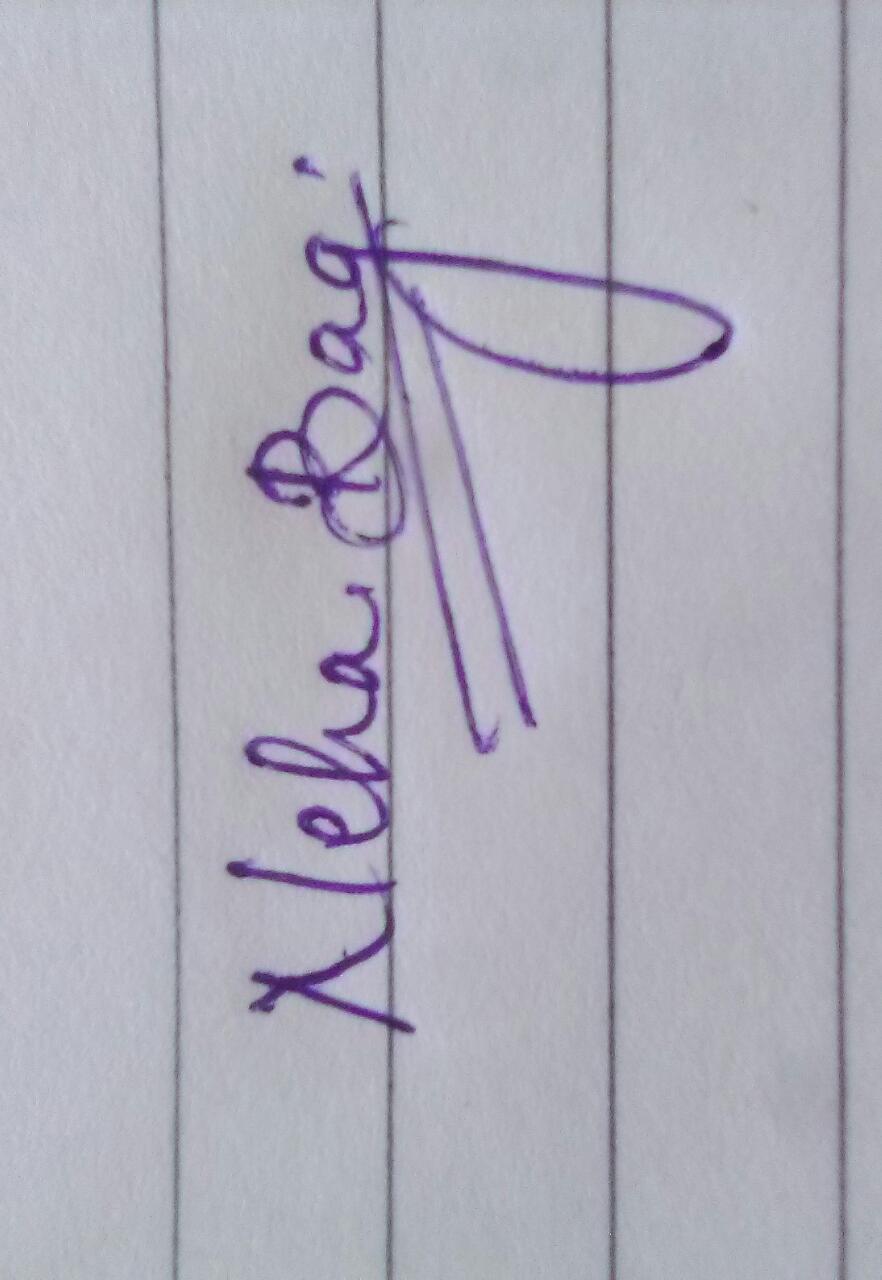 Neha Bag